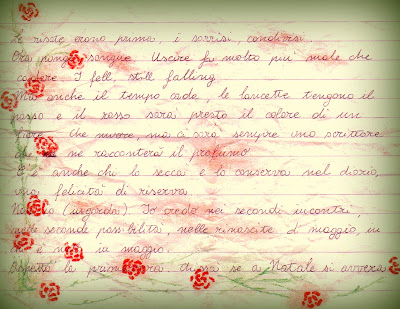 Le risate erano prima, i sorrisi condivisi.
Ora sangue. Uscire fa molto più male che
cadere. I fell, still falling
Ma anche il tempo cade, le lancette tengono il
passo e il rosso sarà presto il colore di un
fiore che muore, ma ci sarà sempre uno scrittore
che ne racconterà il profumo
E c'è anche chi lo secca e lo conserva nel diario,
una felicità di riserva.
(ingordi). Io credo nei secondi incontri,
nelle seconde possibilità, nelle rinascite d'maggio, in
me è nato in maggio.
Aspetto la primavera. chissà se a Natale si avvera